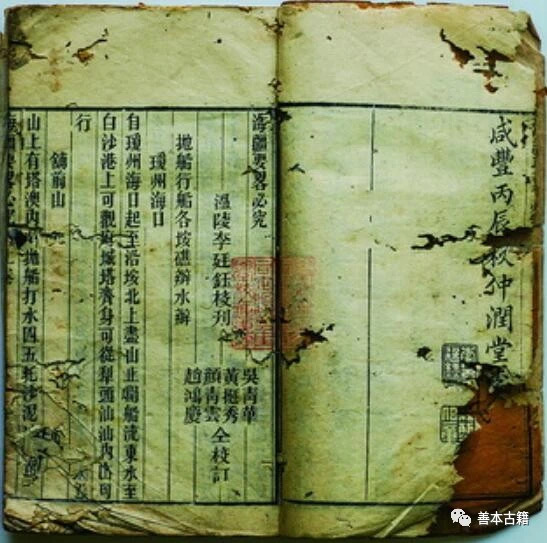 咸豐丙辰秋仲潤堂
海疆要畧必究
溫陵李廷鈺校刊
吳青華
黃挺秀
顏青雲
趙鴻慶
仝校訂
拋船行船各垵礁辨水辦
瓊州海口
自瓊州海口起至浯垵北上盡山止開船流東水至
白沙港上可觀府城塔齊身可從犁頭汕汕內出可
行
鋪前山
山上有塔澳內可拋船打水四五托沙泥
善本古籍